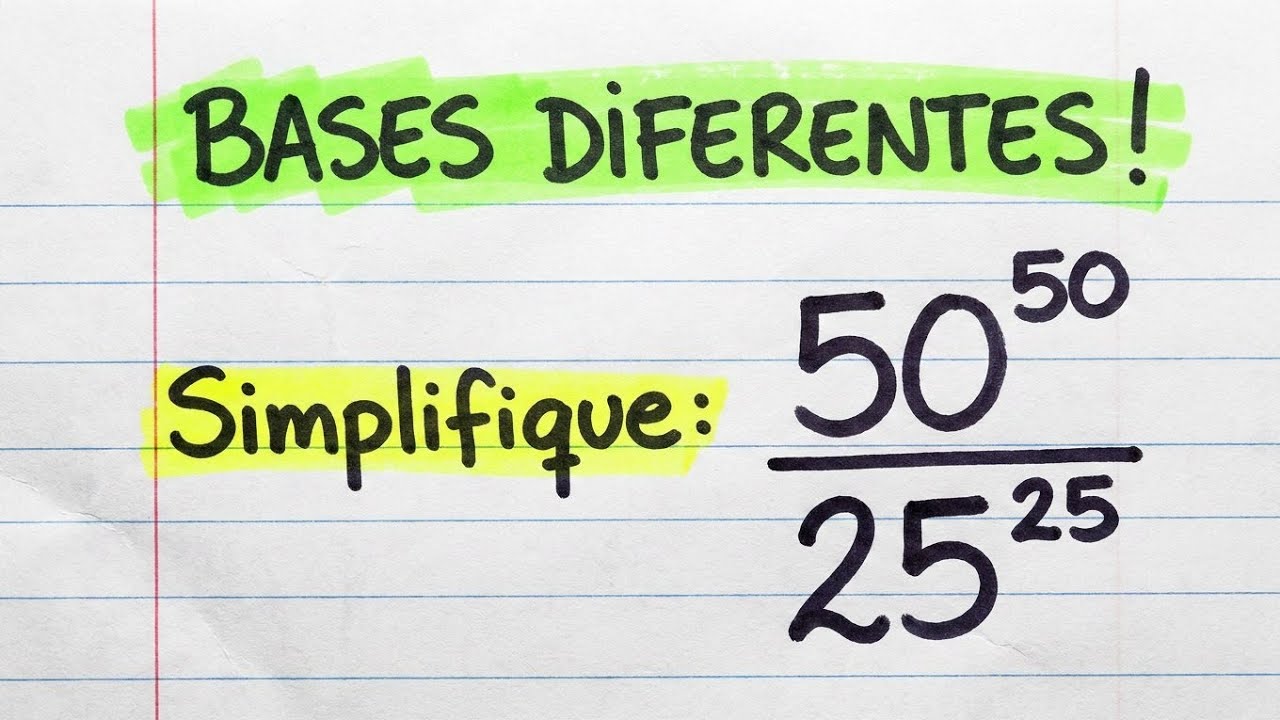 BASES DiFERENTES!
Simplifique:
50^50
25^25